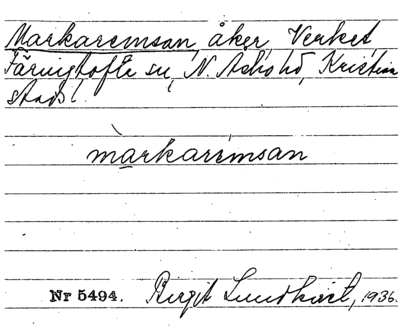 Markaremsan, åker, Verket
Färingtofta sn, N. Åsbo hd, Kristian
stads l.
màrkarémsan
Nr 5494. Birgit Lundkvist, 1936.